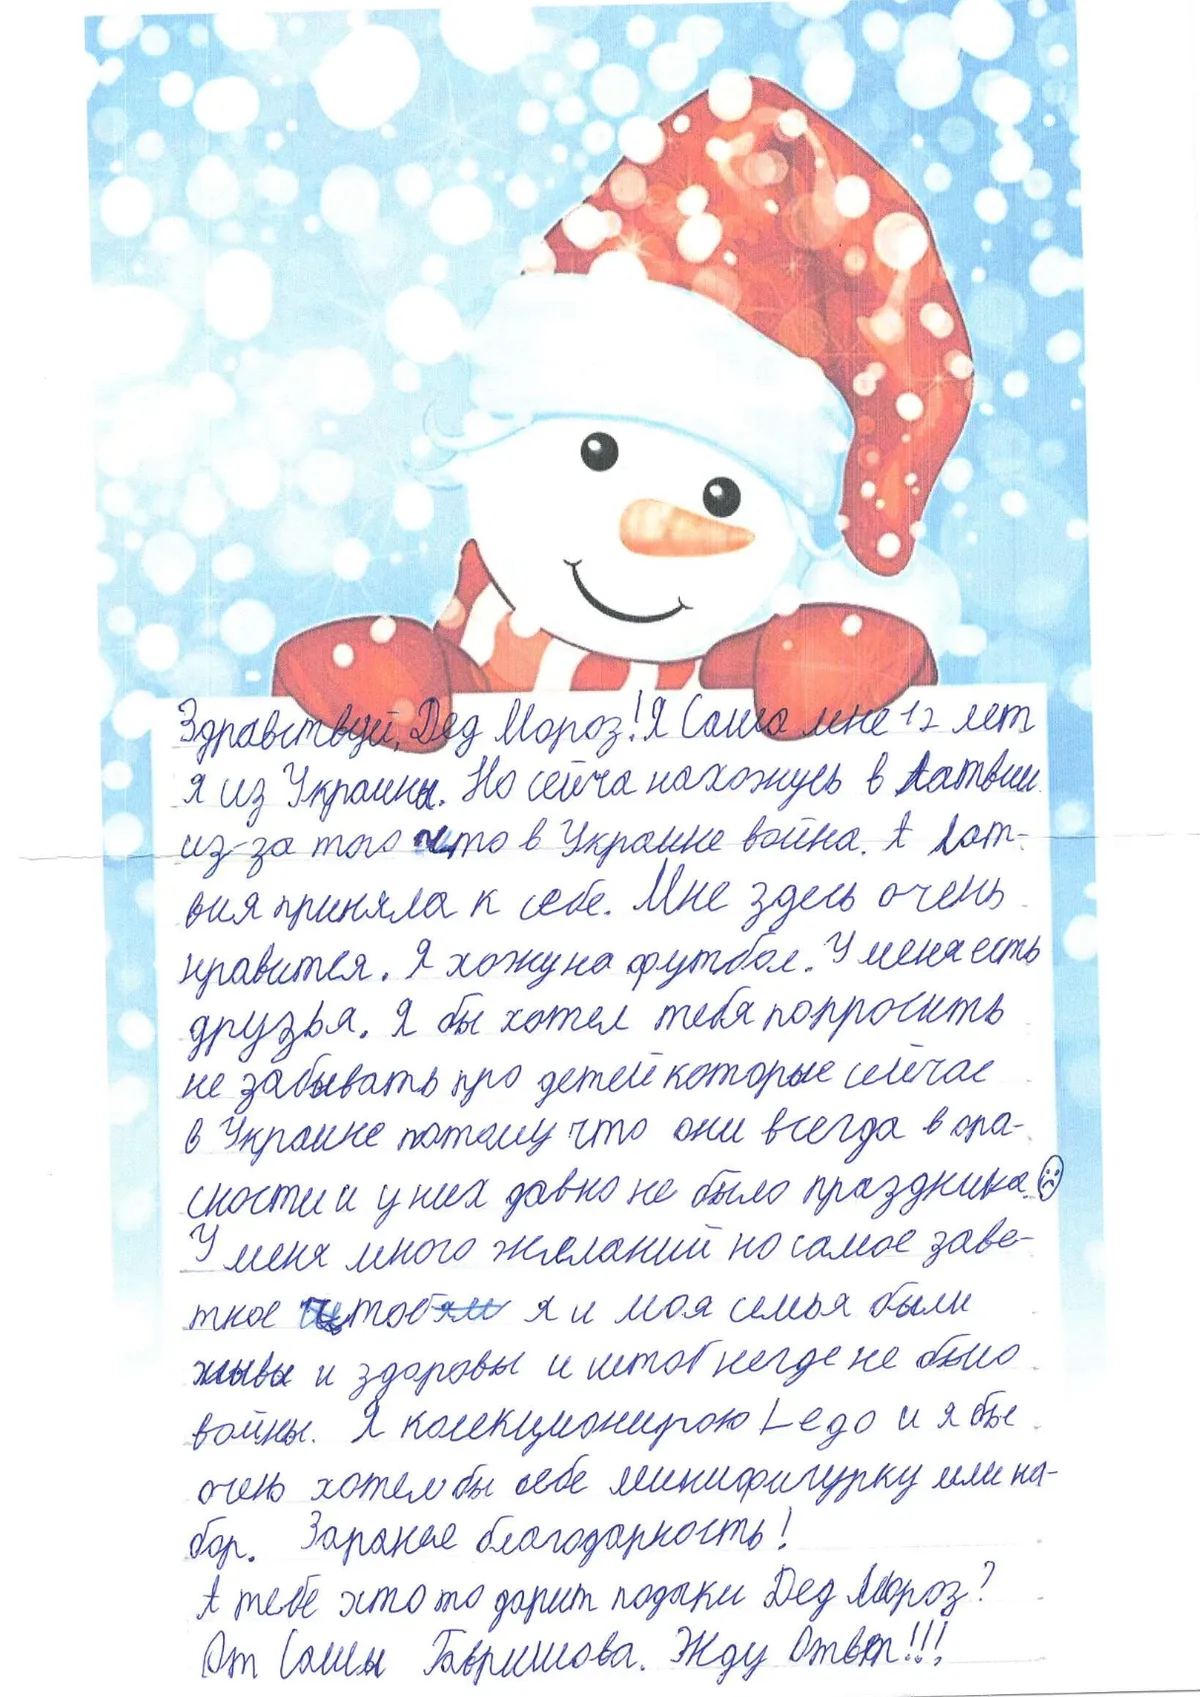 Здравствуй, Дед Мороз! Я Саша мне 12 лет
я из Украины. Но сейча нахожусь в Латвии
из-за того что в Украине война. А Лат-
вия приняла к себе. Мне здесь очень
нравится. Я хожу на футбол. У меня есть
друзья. Я бы хотел тебя попросить
не забывать про детей которые сейчас
в Украине потому что они всегда в опа-
сности и у них давно не было праздника.
У меня много желаний но самое заве-
тное чтоб я и моя семья были
живы и здоровы и штоб негде не было
войны. Я колекционирою Lego и я бы
очень хотел бы себе минифигурку или на-
бор. Заранее благодарность!
А тебе хто то дарит подыки Дед Мороз?
От Саши Гавришова. Жду Ответ!!!